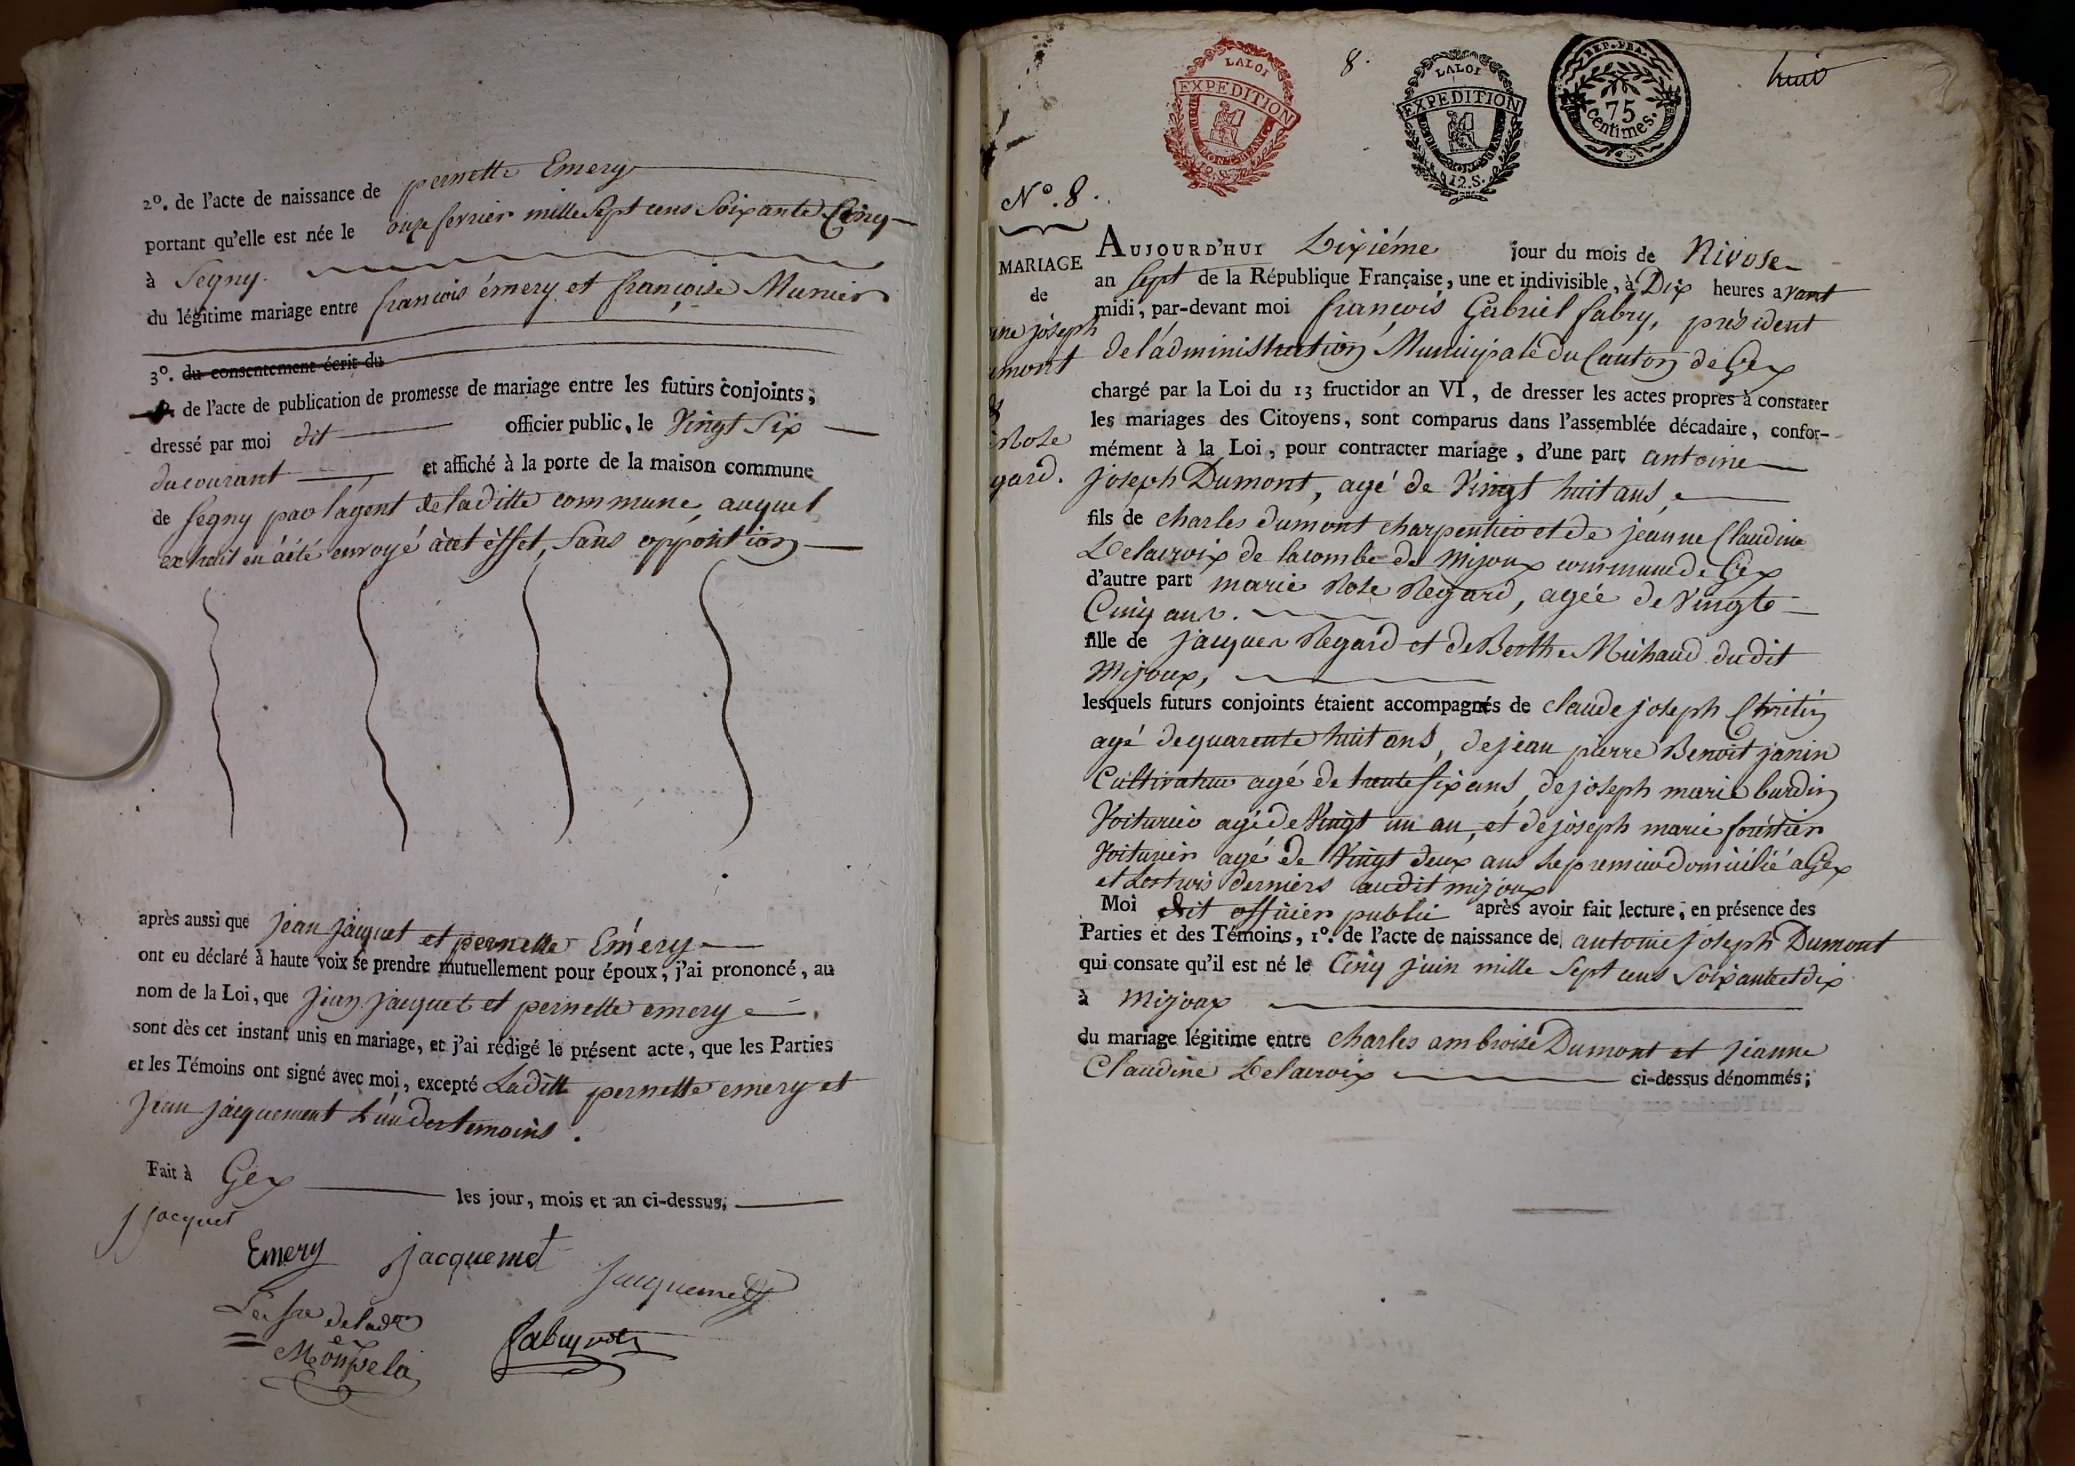 2º. de l'acte de naissance de pernette Emery
portant qu'elle est née le onze fevrier mille Sept cens Soixante Cinq
à Segny.
du légitime mariage entre françois émery et françoise Munier
3º. du consentement écrit du
de l'acte de publication de promesse de mariage entre les futurs conjoints;
dressé par moi dit officier public, le Vingt Six
du courant et affiché à la porte de la maison commune
de Segny par l'agent de la ditte commune, auquel
extrait en a été envoyé à cet effet, Sans opposition
après aussi que jean jacquet et pernette Emery
ont eu déclaré à haute voix se prendre mutuellement pour époux, j'ai prononcé, au
nom de la Loi, que jean jacquet et pernette emery
sont dès cet instant unis en mariage, et j'ai rédigé le présent acte, que les Parties
et les Témoins ont signé avec moi, excepté Laditte pernette emery et
jean jacquement L'un des temoins.
Fait à Gex les jour, mois et an ci-dessus.
j jacquet
Emery jacquemet jacquemet
8. huit
LA LOI
EXPEDITION
12.S.
LA LOI
EXPEDITION
12.S.
REP. FRA.
75
centimes.
Nº. 8.
MARIAGE
de
ine joseph
umont
Rose
gard.
AUJOURD'HUI Dixiéme jour du mois de Nivose
an Sept de la République Française, une et indivisible, à Dix heures avant
midi, par-devant moi françois Gabriel fabry, président
de l'administration Municipale du Canton de Gex
chargé par la Loi du 13 fructidor an VI, de dresser les actes propres à constater
les mariages des Citoyens, sont comparus dans l'assemblée décadaire, confor-
mément à la Loi, pour contracter mariage, d'une part antoine
joseph Dumont, agé de Vingt huit ans,
fils de charles dumont charpentier et de jeanne Claudine
Delacroix de lacombe de Mijoux commune de Gex
d'autre part marie Rose Regard, agée de Vingt
Cinq ans.
fille de jacques Regard et de Berthe Michaud dudit
Mijoux,
lesquels futurs conjoints étaient accompagnés de claude joseph Christin
agé de quarente huit ans, de jean pierre Benoit janin
Cultivateur agé de trente six ans, de joseph marie burdin
Voiturier agé de Vingt un an, et de joseph marie fournier
Voiturier agé de Vingt deux ans le premier domicilié a Gex
et Les trois derniers audit mijoux
Moi dit officier public après avoir fait lecture, en présence des
Parties et des Témoins, 1º. de l'acte de naissance de antoine joseph Dumont
qui consate qu'il est né le Cinq juin mille Sept cens Soixante et dix
à Mijoux
du mariage légitime entre charles ambroise Dumont et jeanne
Claudine Delacroix ci-dessus dénommés;